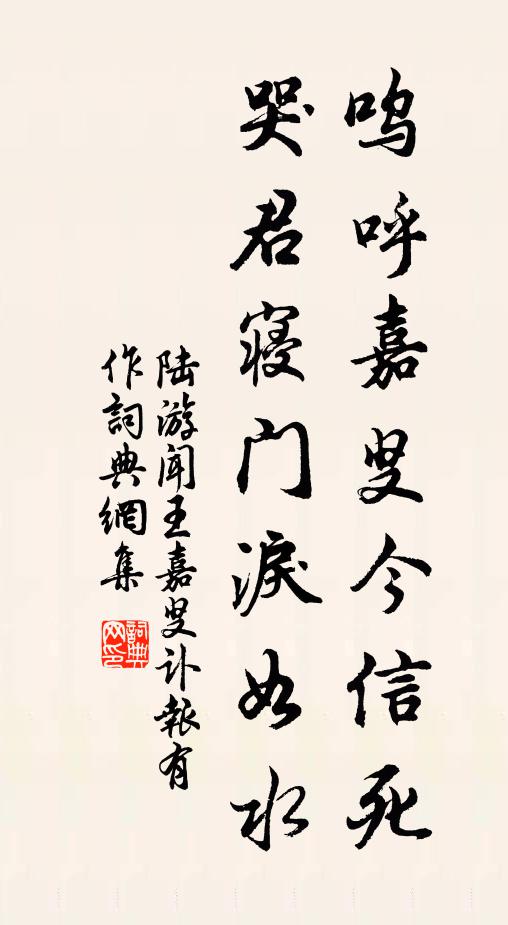 呜呼嘉叟今信死
哭君寝门淚如水
陆游闻王嘉叟讣報有
作詞典網集
詞典
网印